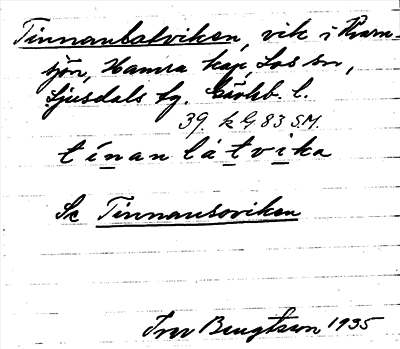 Tinnanbatviken, vik i Kvarn-
sjön, Hamra kap, Los sn,
Ljusdals tg. Gävleb. l.
39. k G 83 SM.
tínanlátvika
Se Tinnansoviken
Ivar Bengtsson 1935